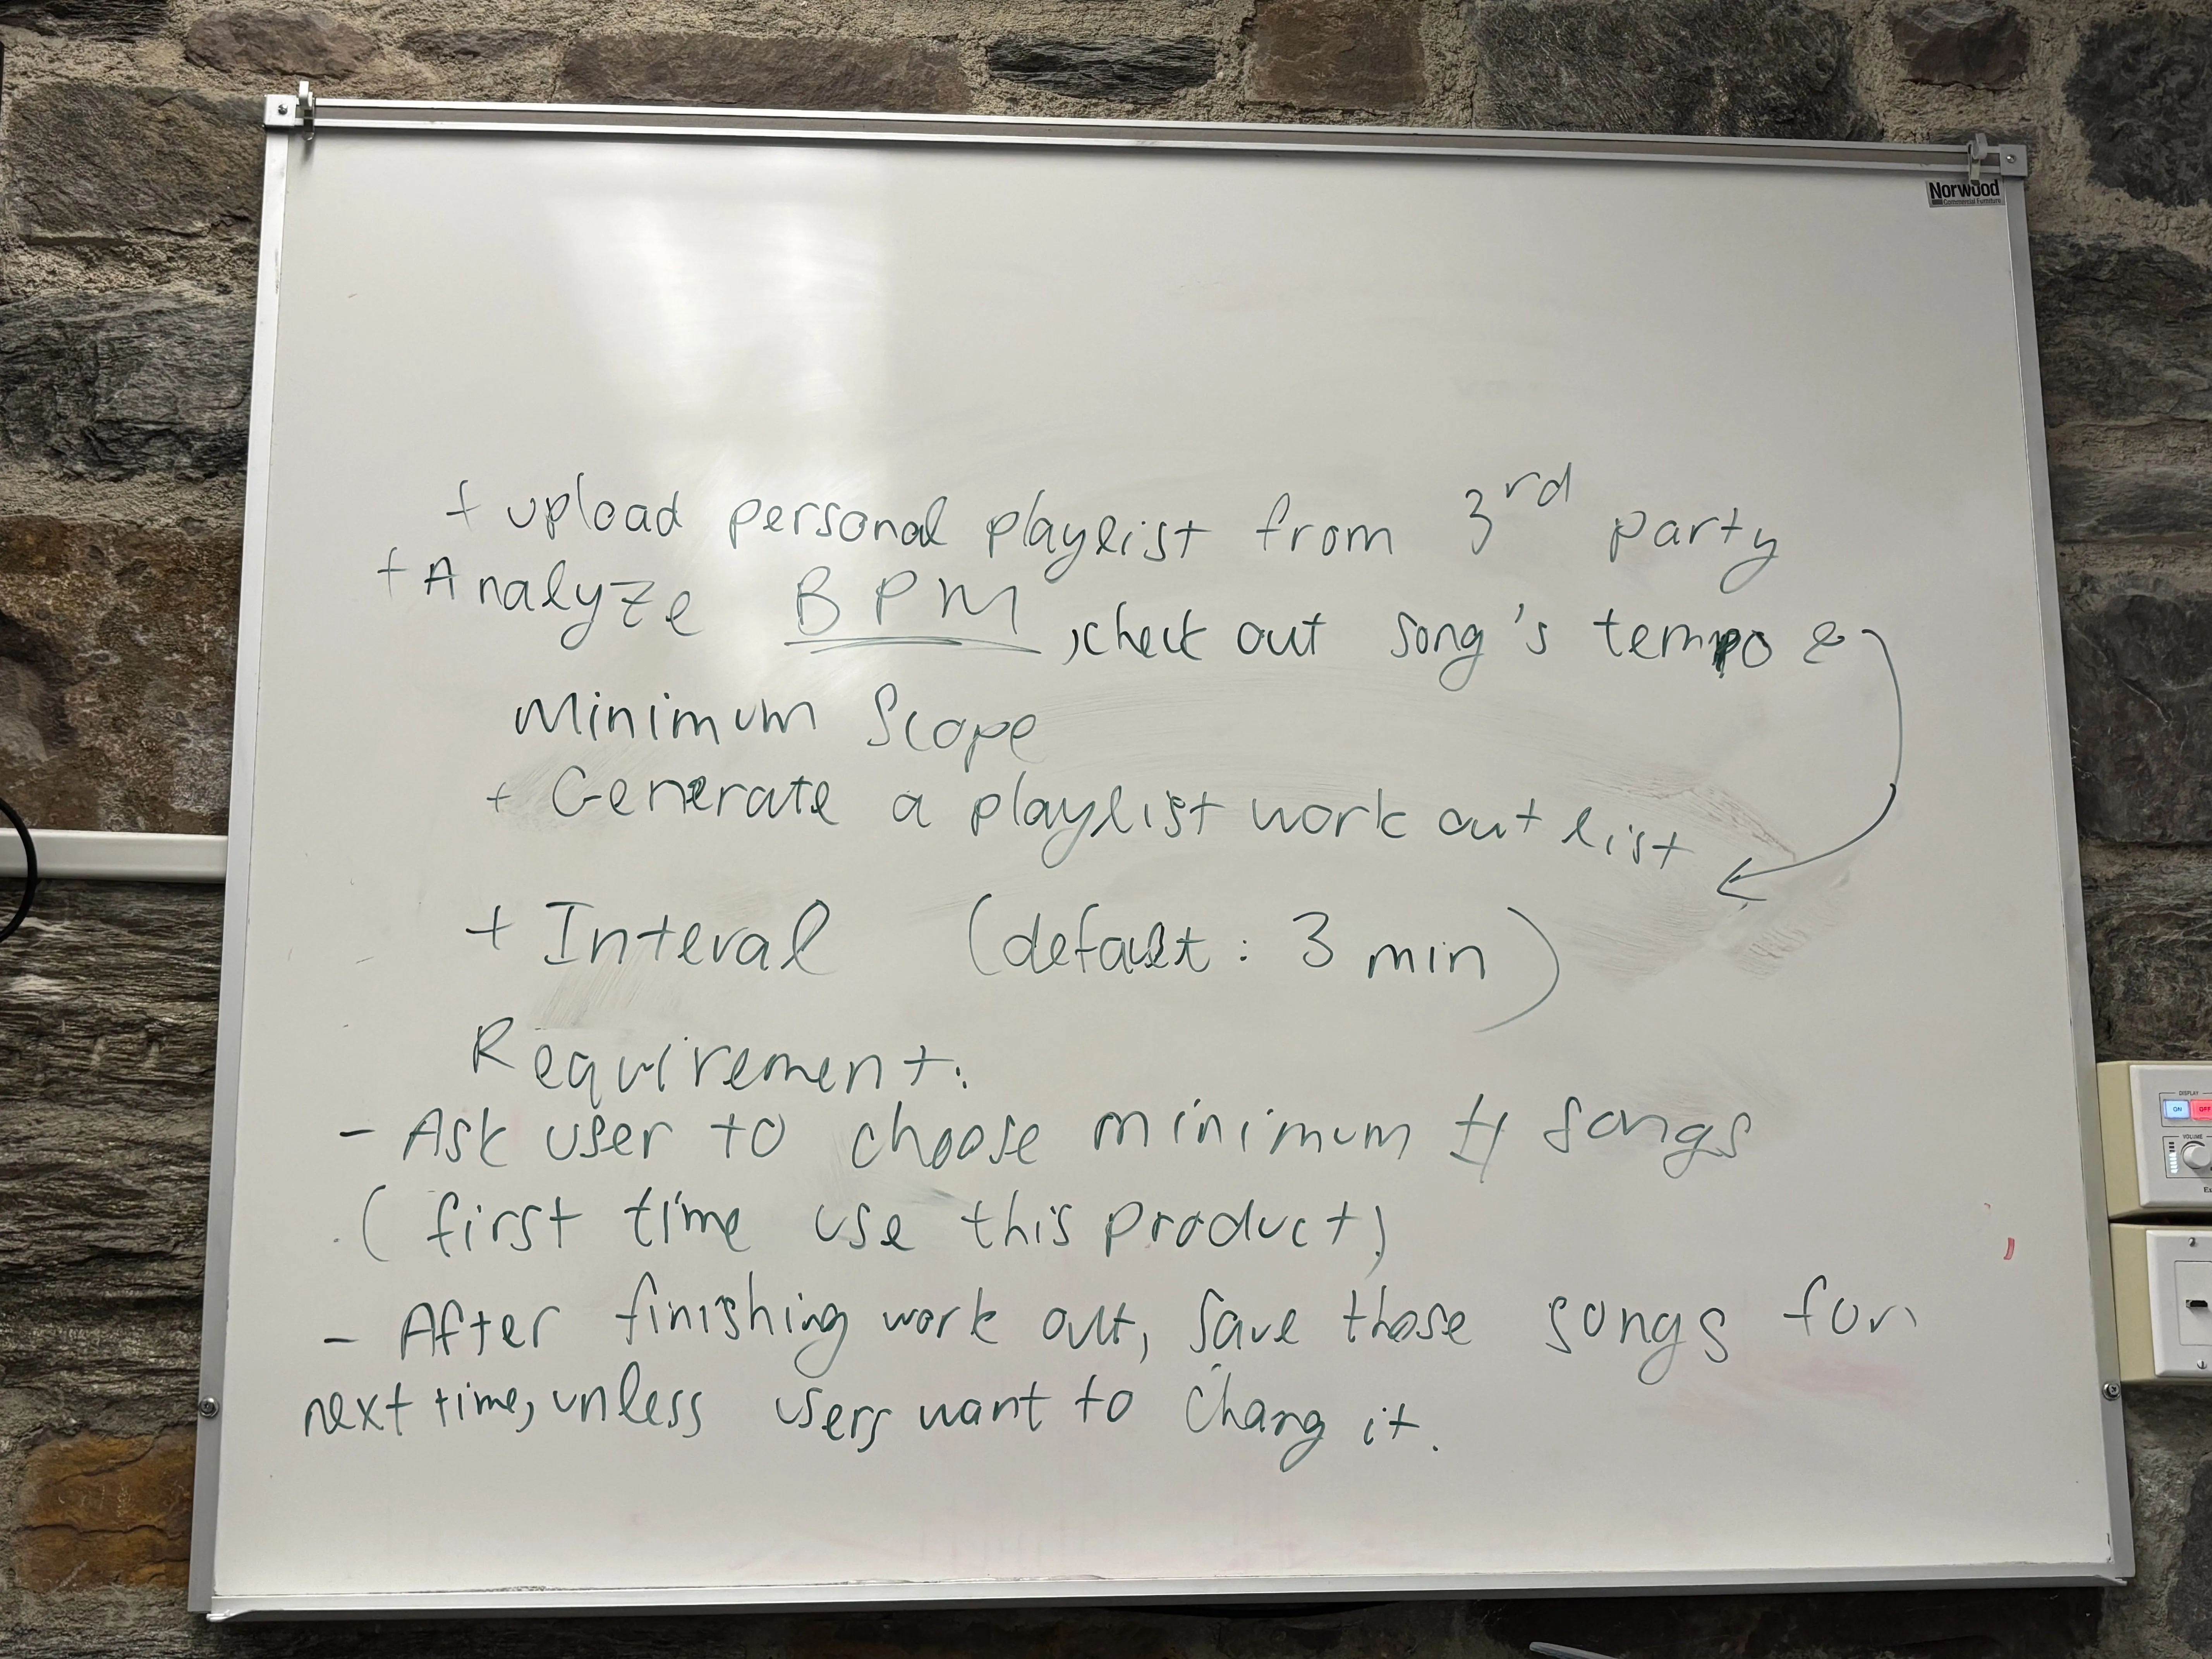 Norwood
Commercial Furniture
+ upload personal playlist from 3rd party
+ Analyze BPM, check out song's tempo &
Minimum Scope
+ Generate a playlist work out list
+ Interval (default: 3 min)
Requirement:
- Ask user to choose minimum # songs
(first time use this product)
- After finishing work out, save those songs for
next time, unless users want to chang it.
DISPLAY
ON OFF
VOLUME